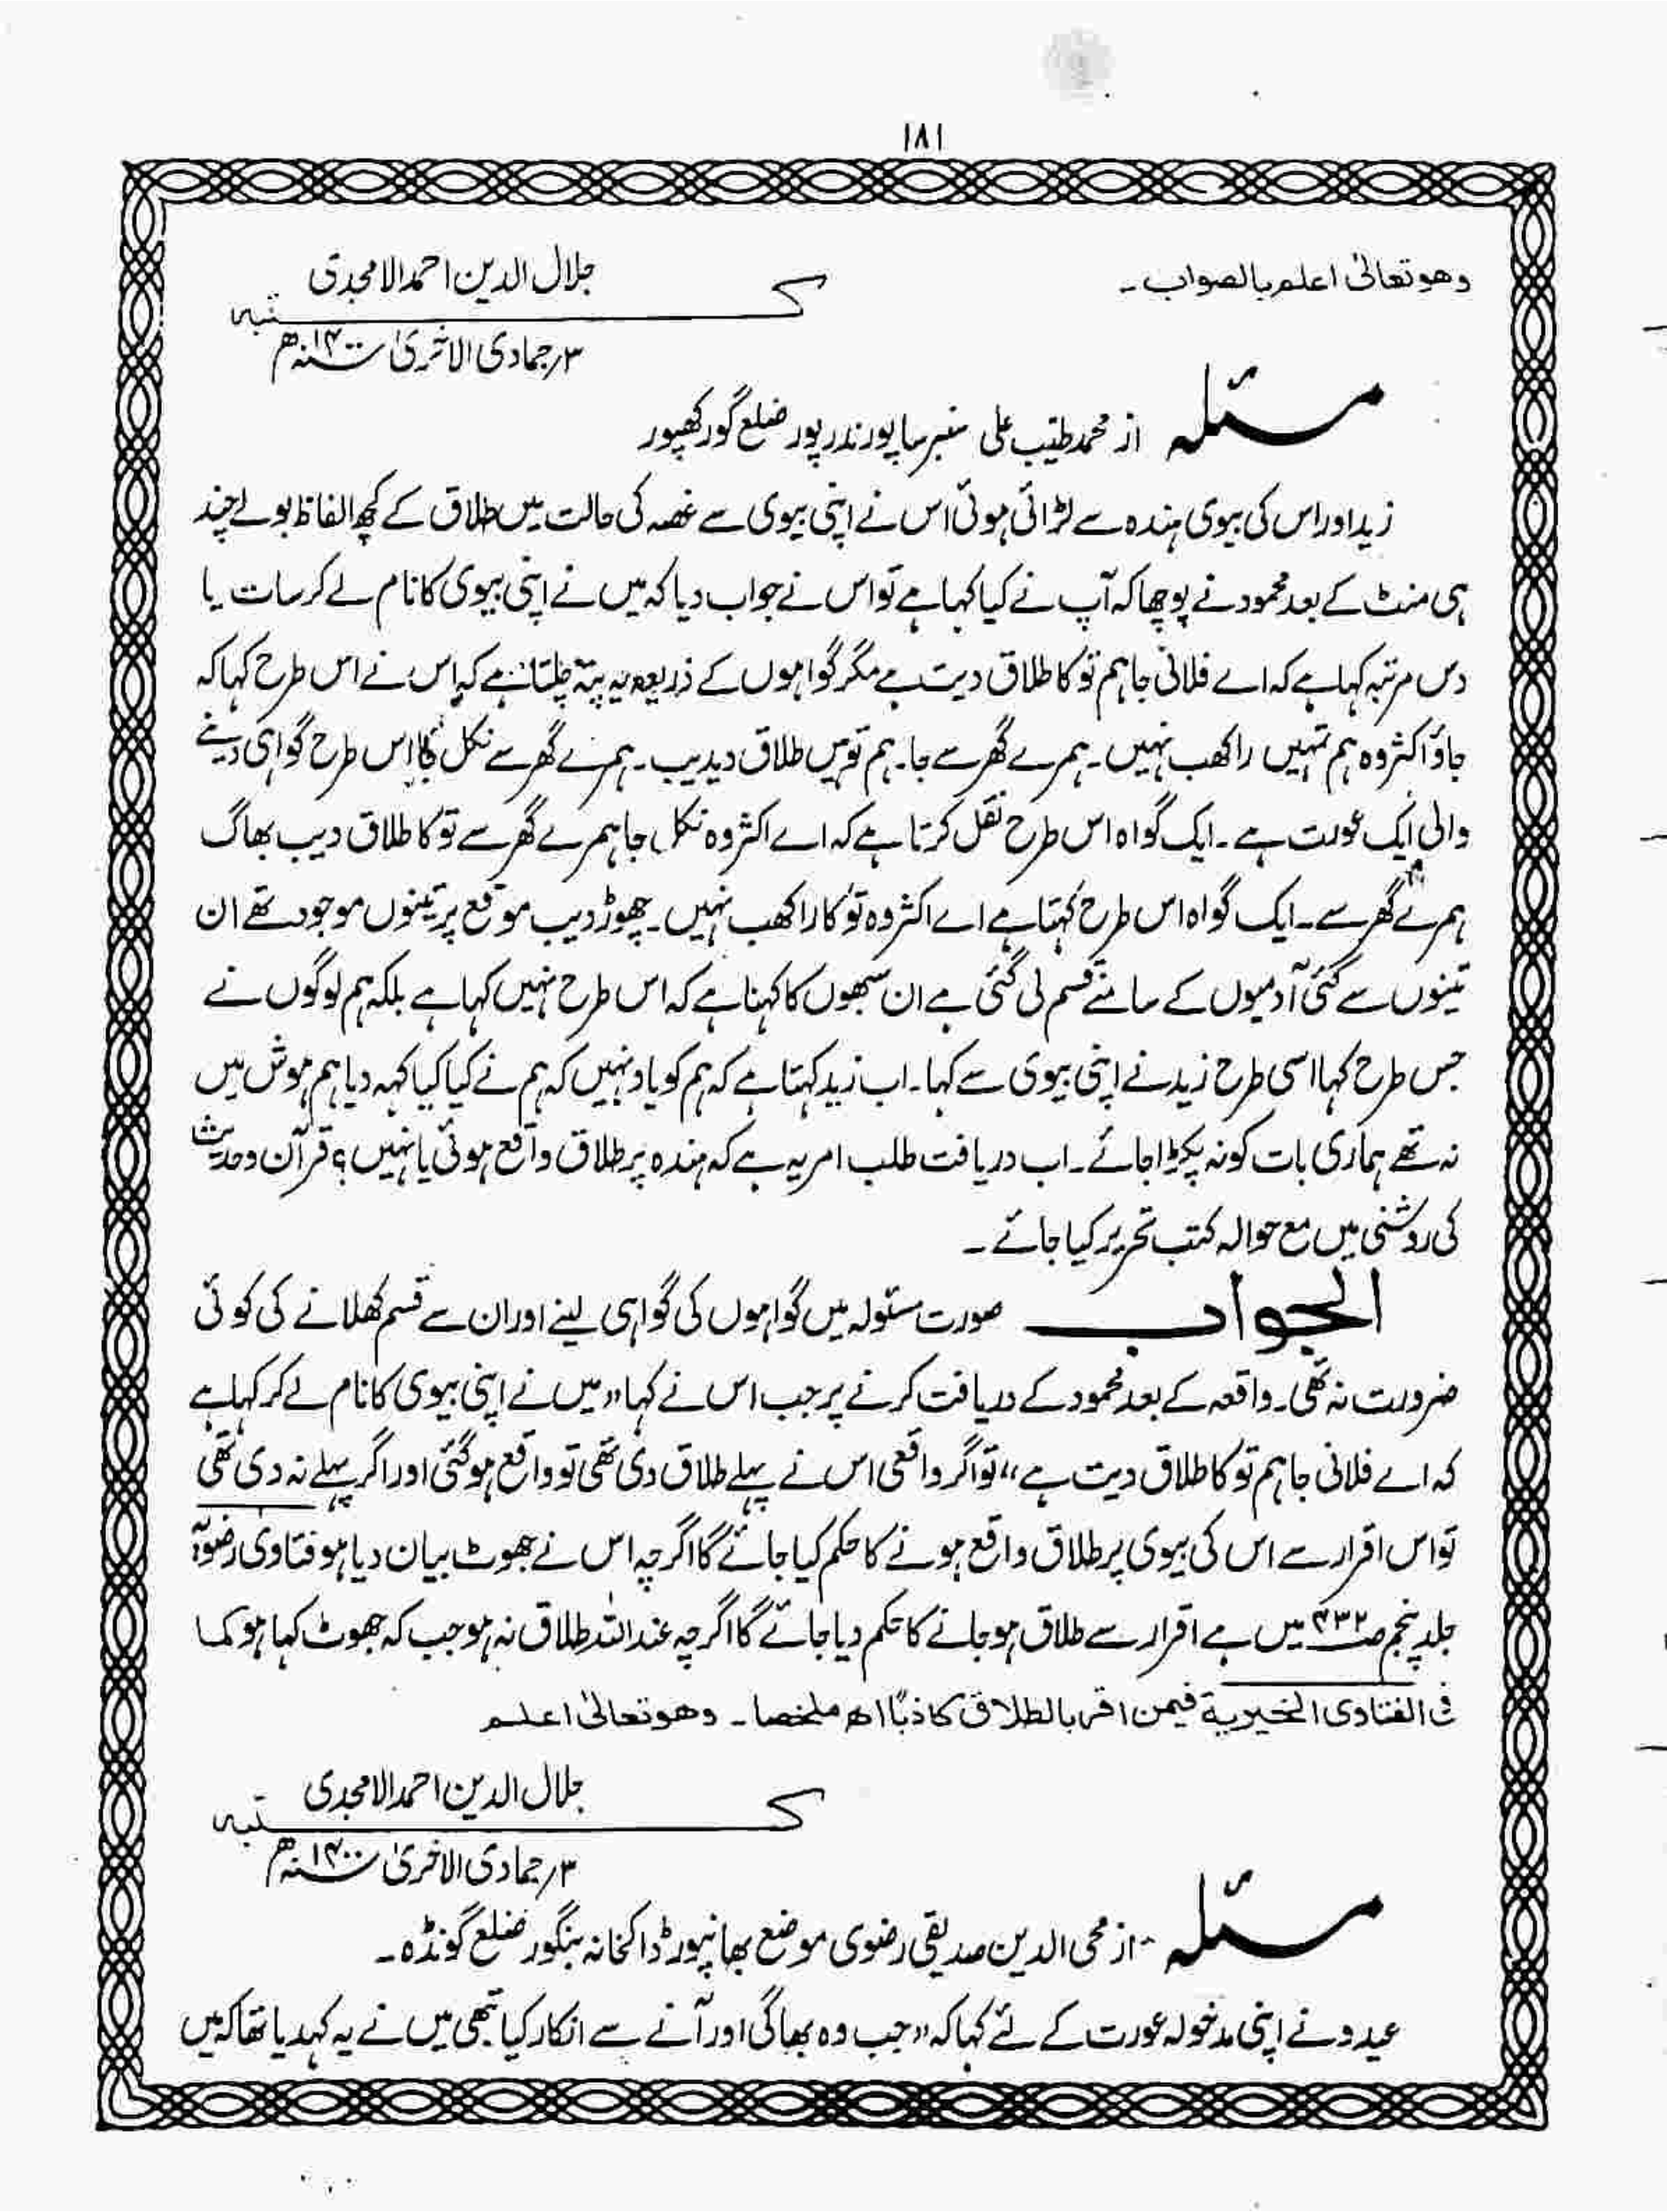 ۱۸۱
وھو تعالیٰ اعلم بالصواب ۔
جلال الدین احمد الامجدی
کتبہ
۳؍ جمادی الاخریٰ ۱۴۰۰ھ
مسئلہ از محمد طیب علی منبر ساپور ندرپور ضلع گورکھپور
زید اور اس کی بیوی ہندہ سے لڑائی ہوئی اس نے اپنی بیوی سے غصہ کی حالت میں طلاق کے کچھ الفاظ بولے چند
ہی منٹ کے بعد محمود نے پوچھا کہ آپ نے کیا کہا ہے تو اس نے جواب دیا کہ میں نے اپنی بیوی کا نام لے کر سات یا
دس مرتبہ کہا ہے کہ اے فلانی جا ہم تو کا طلاق دیت ہے مگر گواہوں کے ذریعہ یہ پتہ چلتا ہے کہ اس نے اس طرح کہا کہ
جاؤ اکثروہ ہم تمہیں راکھب نہیں ۔ ہمرے گھر سے جا۔ ہم تو یں طلاق دیدیب ۔ ہمرے گھر سے نکل جا اس طرح گواہی دینے
والی ایک عورت ہے ۔ ایک گواہ اس طرح نقل کرتا ہے کہ اے اکثروہ نکل جا ہمرے گھر سے تو کا طلاق دیب بھاگ
ہمرے گھر سے ۔ ایک گواہ اس طرح کہتا ہے اے اکثروہ تو کا راکھب نہیں ۔ چھوڑ دیب موقع پر تینوں موجود تھے ان
تینوں سے کئی آدمیوں کے سامنے قسم لی گئی ہے ان سبھوں کا کہنا ہے کہ اس طرح نہیں کہا ہے بلکہ ہم لوگوں نے
جس طرح کہا اسی طرح زید نے اپنی بیوی سے کہا ۔ اب زید کہتا ہے کہ ہم کو یاد نہیں کہ ہم نے کیا کیا کہہ دیا ہم ہوش میں
نہ تھے ہماری بات کو نہ پکڑا جائے ۔ اب دریافت طلب امر یہ ہے کہ ہندہ پر طلاق واقع ہوئی یا نہیں ؟ قرآن و حدیث
کی روشنی میں مع حوالہ کتب تحریر کیا جائے ۔
الجواب صورت مسئولہ میں گواہوں کی گواہی لینے اور ان سے قسم کھلانے کی کوئی
ضرورت نہ تھی ۔ واقعہ کے بعد محمود کے دریافت کرنے پر جب اس نے کہا ”میں نے اپنی بیوی کا نام لے کر کہا ہے
کہ اے فلانی جا ہم تو کا طلاق دیت ہے“ تو اگر واقعی اس نے پہلے طلاق دی تھی تو واقع ہوگئی اور اگر پہلے نہ دی تھی
تو اس اقرار سے اس کی بیوی پر طلاق واقع ہونے کا حکم کیا جائے گا اگرچہ اس نے جھوٹ بیان دیا ہو فتاویٰ رضویہ
جلد پنجم ص۴۳۲ میں ہے اقرار سے طلاق ہو جانے کا حکم دیا جائے گا اگرچہ عند اللہ طلاق نہ ہو جب کہ جھوٹ کہا ہو کما
فی الفتاوی الخیریة فیمن اقر بالطلاق کاذبًا اھ ملخصا ۔ وھو تعالیٰ اعلم
جلال الدین احمد الامجدی
کتبہ
۳؍ جمادی الاخریٰ ۱۴۰۰ھ
مسئلہ ۔ از محی الدین صدیقی رضوی موضع بھانپور ڈاکخانہ بنگور ضلع گونڈہ ۔
عیدو نے اپنی مدخولہ عورت کے لئے کہا کہ ”جب وہ بھاگی اور آنے سے انکار کیا تبھی میں نے یہ کہدیا تھا کہ میں